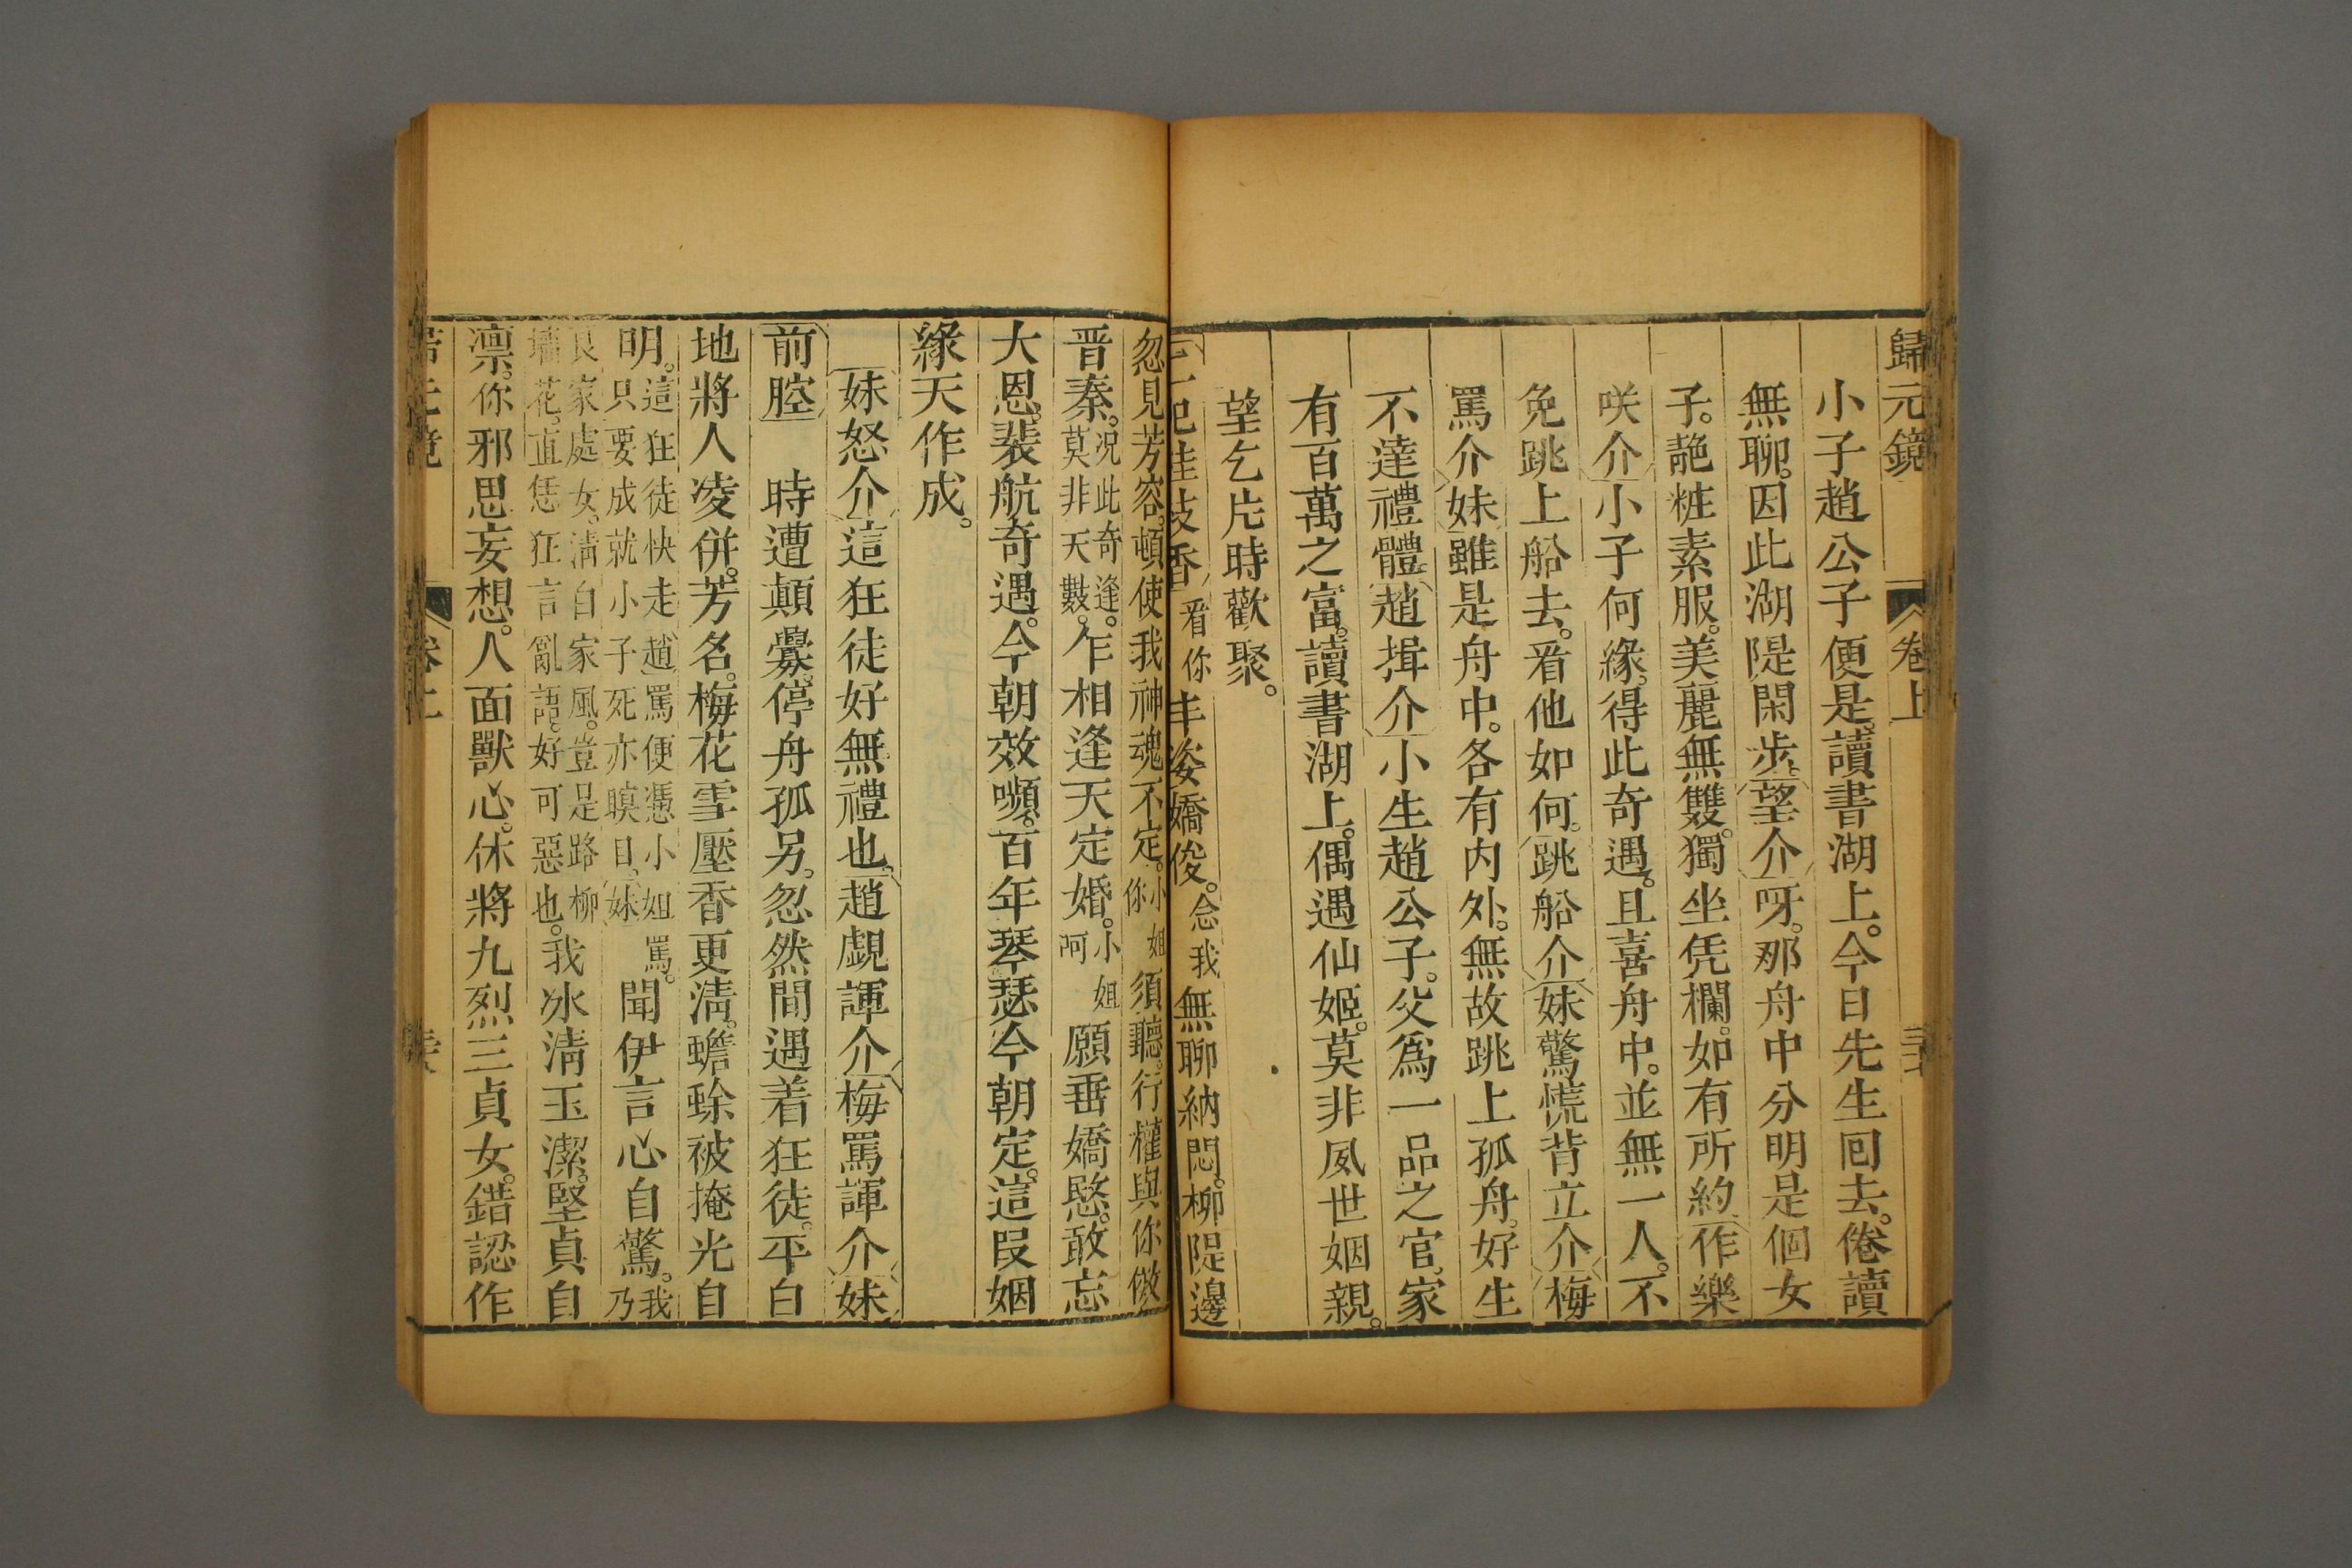 歸元鏡 卷上
小子趙公子便是。讀書湖上。今日先生回去。倦讀
無聊。因此湖隄閑步。望介呀。那舟中分明是個女
子。艷粧素服。美麗無雙。獨坐凭欄。如有所約。作樂
咲介小子何緣。得此奇遇。且喜舟中。並無一人。不
免跳上船去。看他如何。跳船介妹驚慌背立介梅
罵介妹雖是舟中。各有内外。無故跳上孤舟。好生
不達禮體趙揖介小生趙公子。父為一品之官。家
有百萬之富。讀書湖上。偶遇仙姬。莫非夙世姻親。
望乞片時歡聚。
桂枝香看你丰姿嬌俊。念我無聊納悶。柳隄邊
忽見芳容。頓使我神魂不定。小姐你須聽。行權與你傚
晋秦。况此奇逢。莫非天數。乍相逢天定婚。小姐阿願垂嬌愍。敢忘
大恩。裴航奇遇。今朝效嚬。百年琴瑟今朝定。這段姻
緣天作成。
妹怒介這狂徒好無禮也。趙覷諢介梅罵諢介妹
前腔 時遭顛釁。停舟孤另。忽然間遇着狂徒。平白
地將人凌併。芳名。梅花雪壓香更淸。蟾蜍被掩光自
明。這狂徒快走趙罵便憑小姐罵。只要成就小子死亦瞑目。妹聞伊言心自驚。我乃
良家處女。淸白家風。豈是路柳墻花。直恁狂言亂語。好可惡也。我冰淸玉潔。堅貞自
凛。你邪思妄想。人面獸心。休將九烈三貞女。錯認作